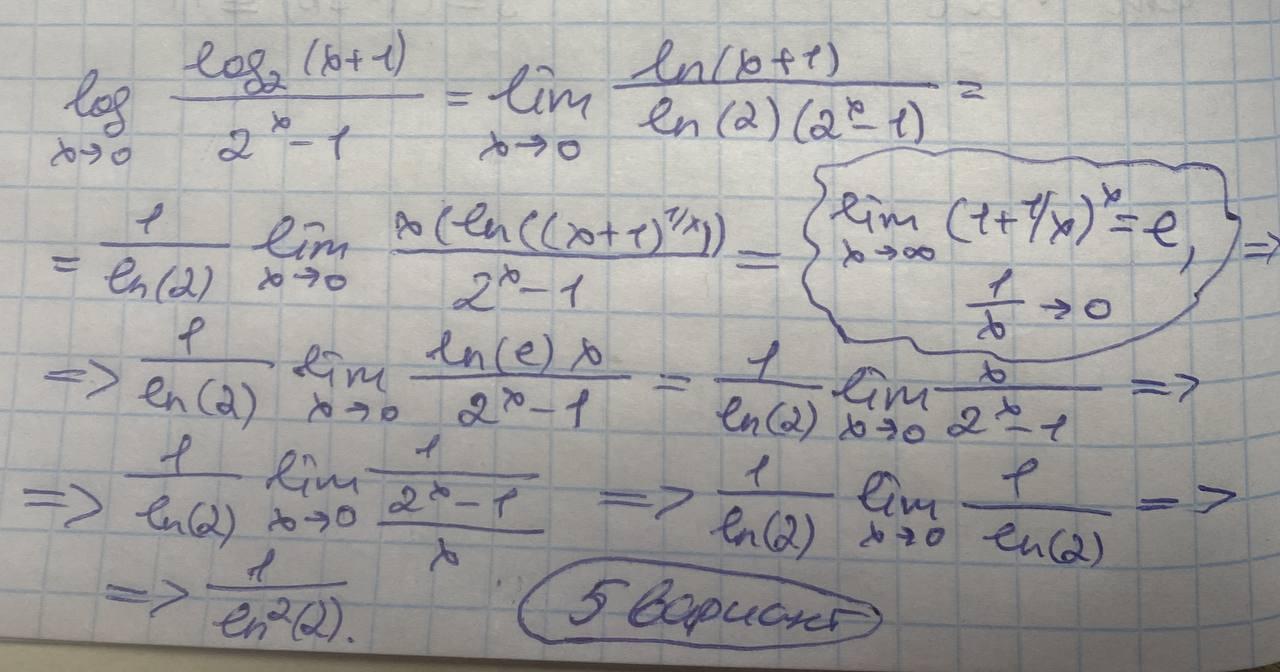 log x→0 log₂(x+1)/(2ˣ-1) = lim x→0 ln(x+1)/(ln(2)(2ˣ-1)) =
= 1/ln(2) lim x→0 x(ln((x+1)^(1/x)))/(2ˣ-1) = { lim x→∞ (1+1/x)ˣ = e, 1/x → 0 } =>
=> 1/ln(2) lim x→0 ln(e)x/(2ˣ-1) = 1/ln(2) lim x→0 x/(2ˣ-1) =>
=> 1/ln(2) lim x→0 1/((2ˣ-1)/x) => 1/ln(2) lim x→0 1/ln(2) =>
=> 1/ln²(2). 5 вариант